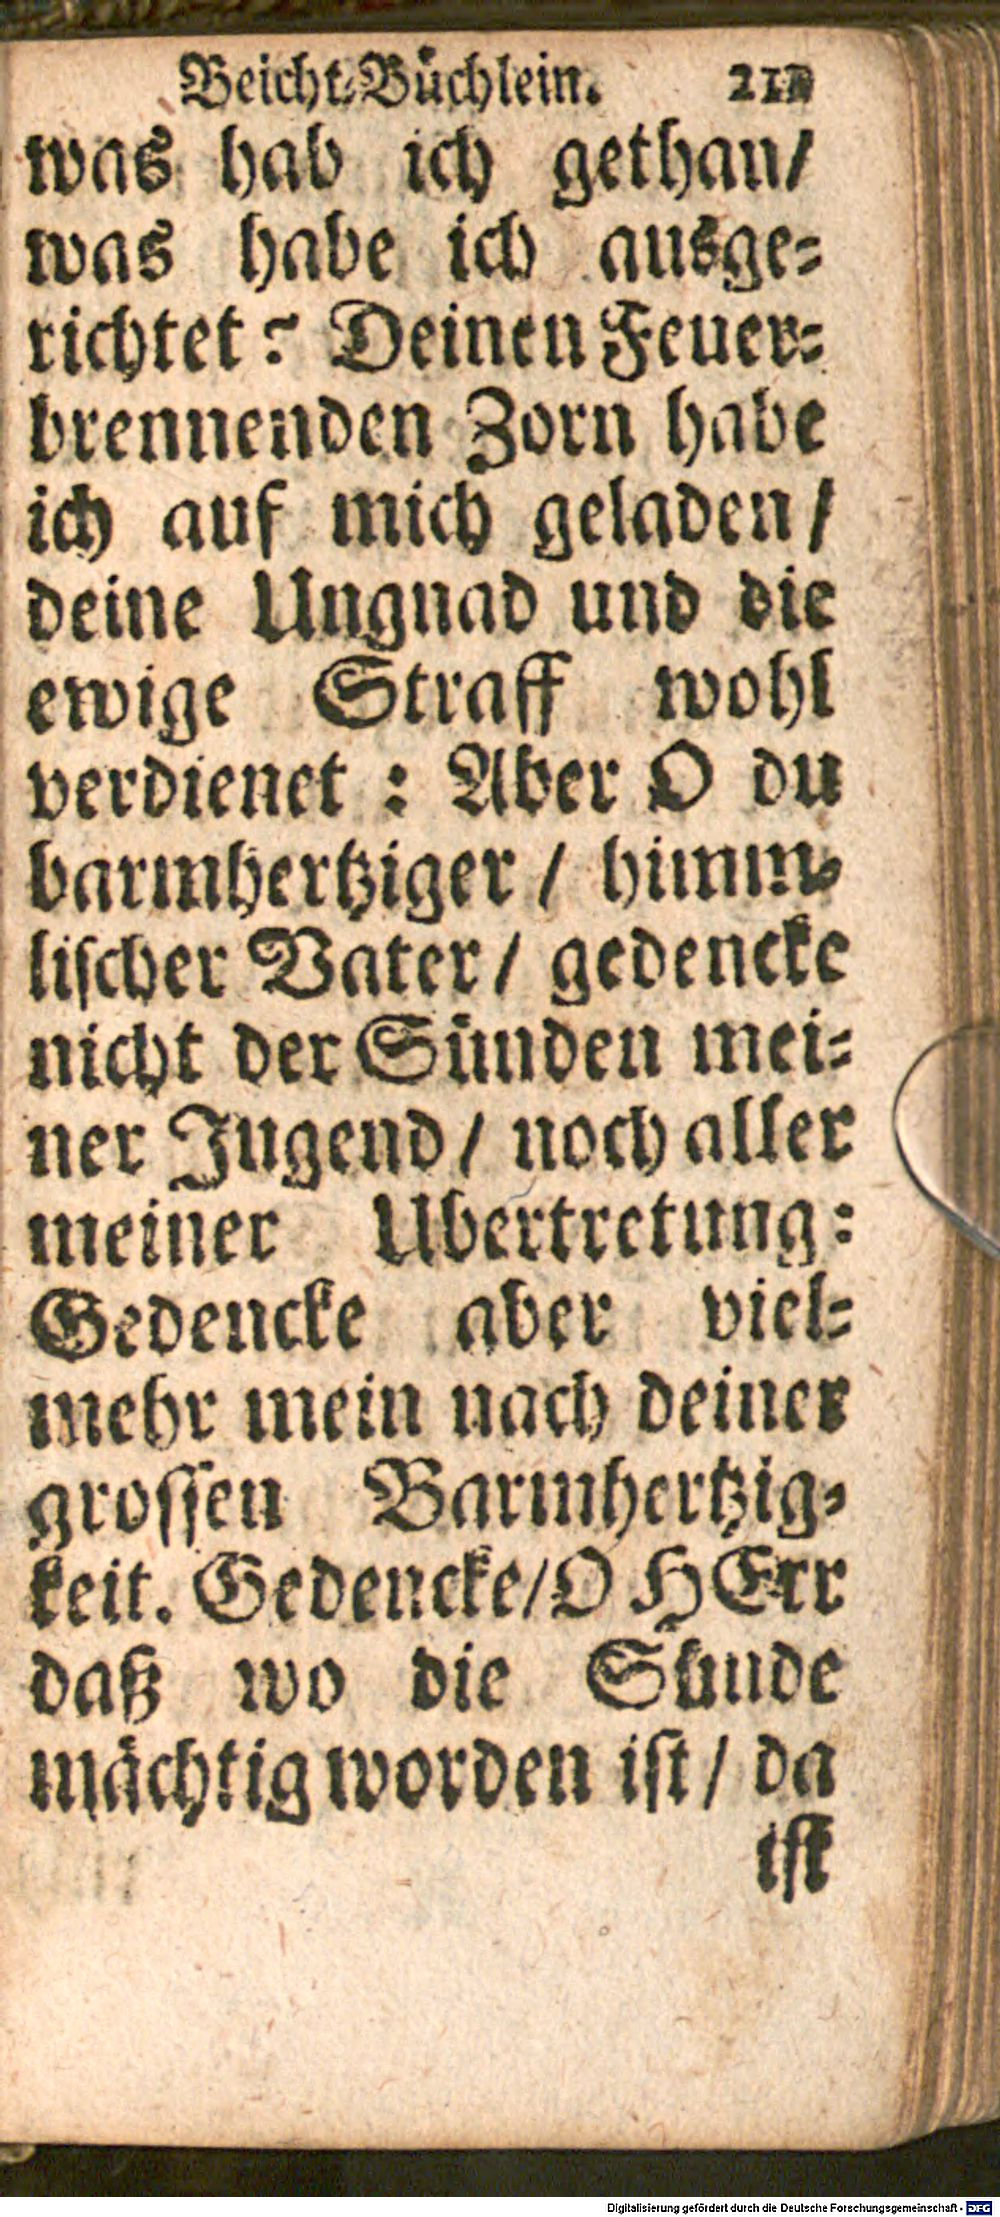 Beicht-Büchlein.
was hab ich gethan/
was habe ich ausge-
richtet? Deinen Feuer-
brennenden Zorn habe
ich auf mich geladen/
deine Ungnad und die
ewige Straff wohl
verdienet : Aber O du
barmhertziger / himm-
lischer Vater / gedencke
nicht der Sünden mei-
ner Jugend / noch aller
meiner Ubertretung:
Gedencke aber viel-
mehr mein nach deiner
grossen Barmhertzig-
keit. Gedencke/O HErr
daß wo die Sünde
mächtig worden ist / da
ist
Digitalisierung gefördert durch die Deutsche Forschungsgemeinschaft - DFG